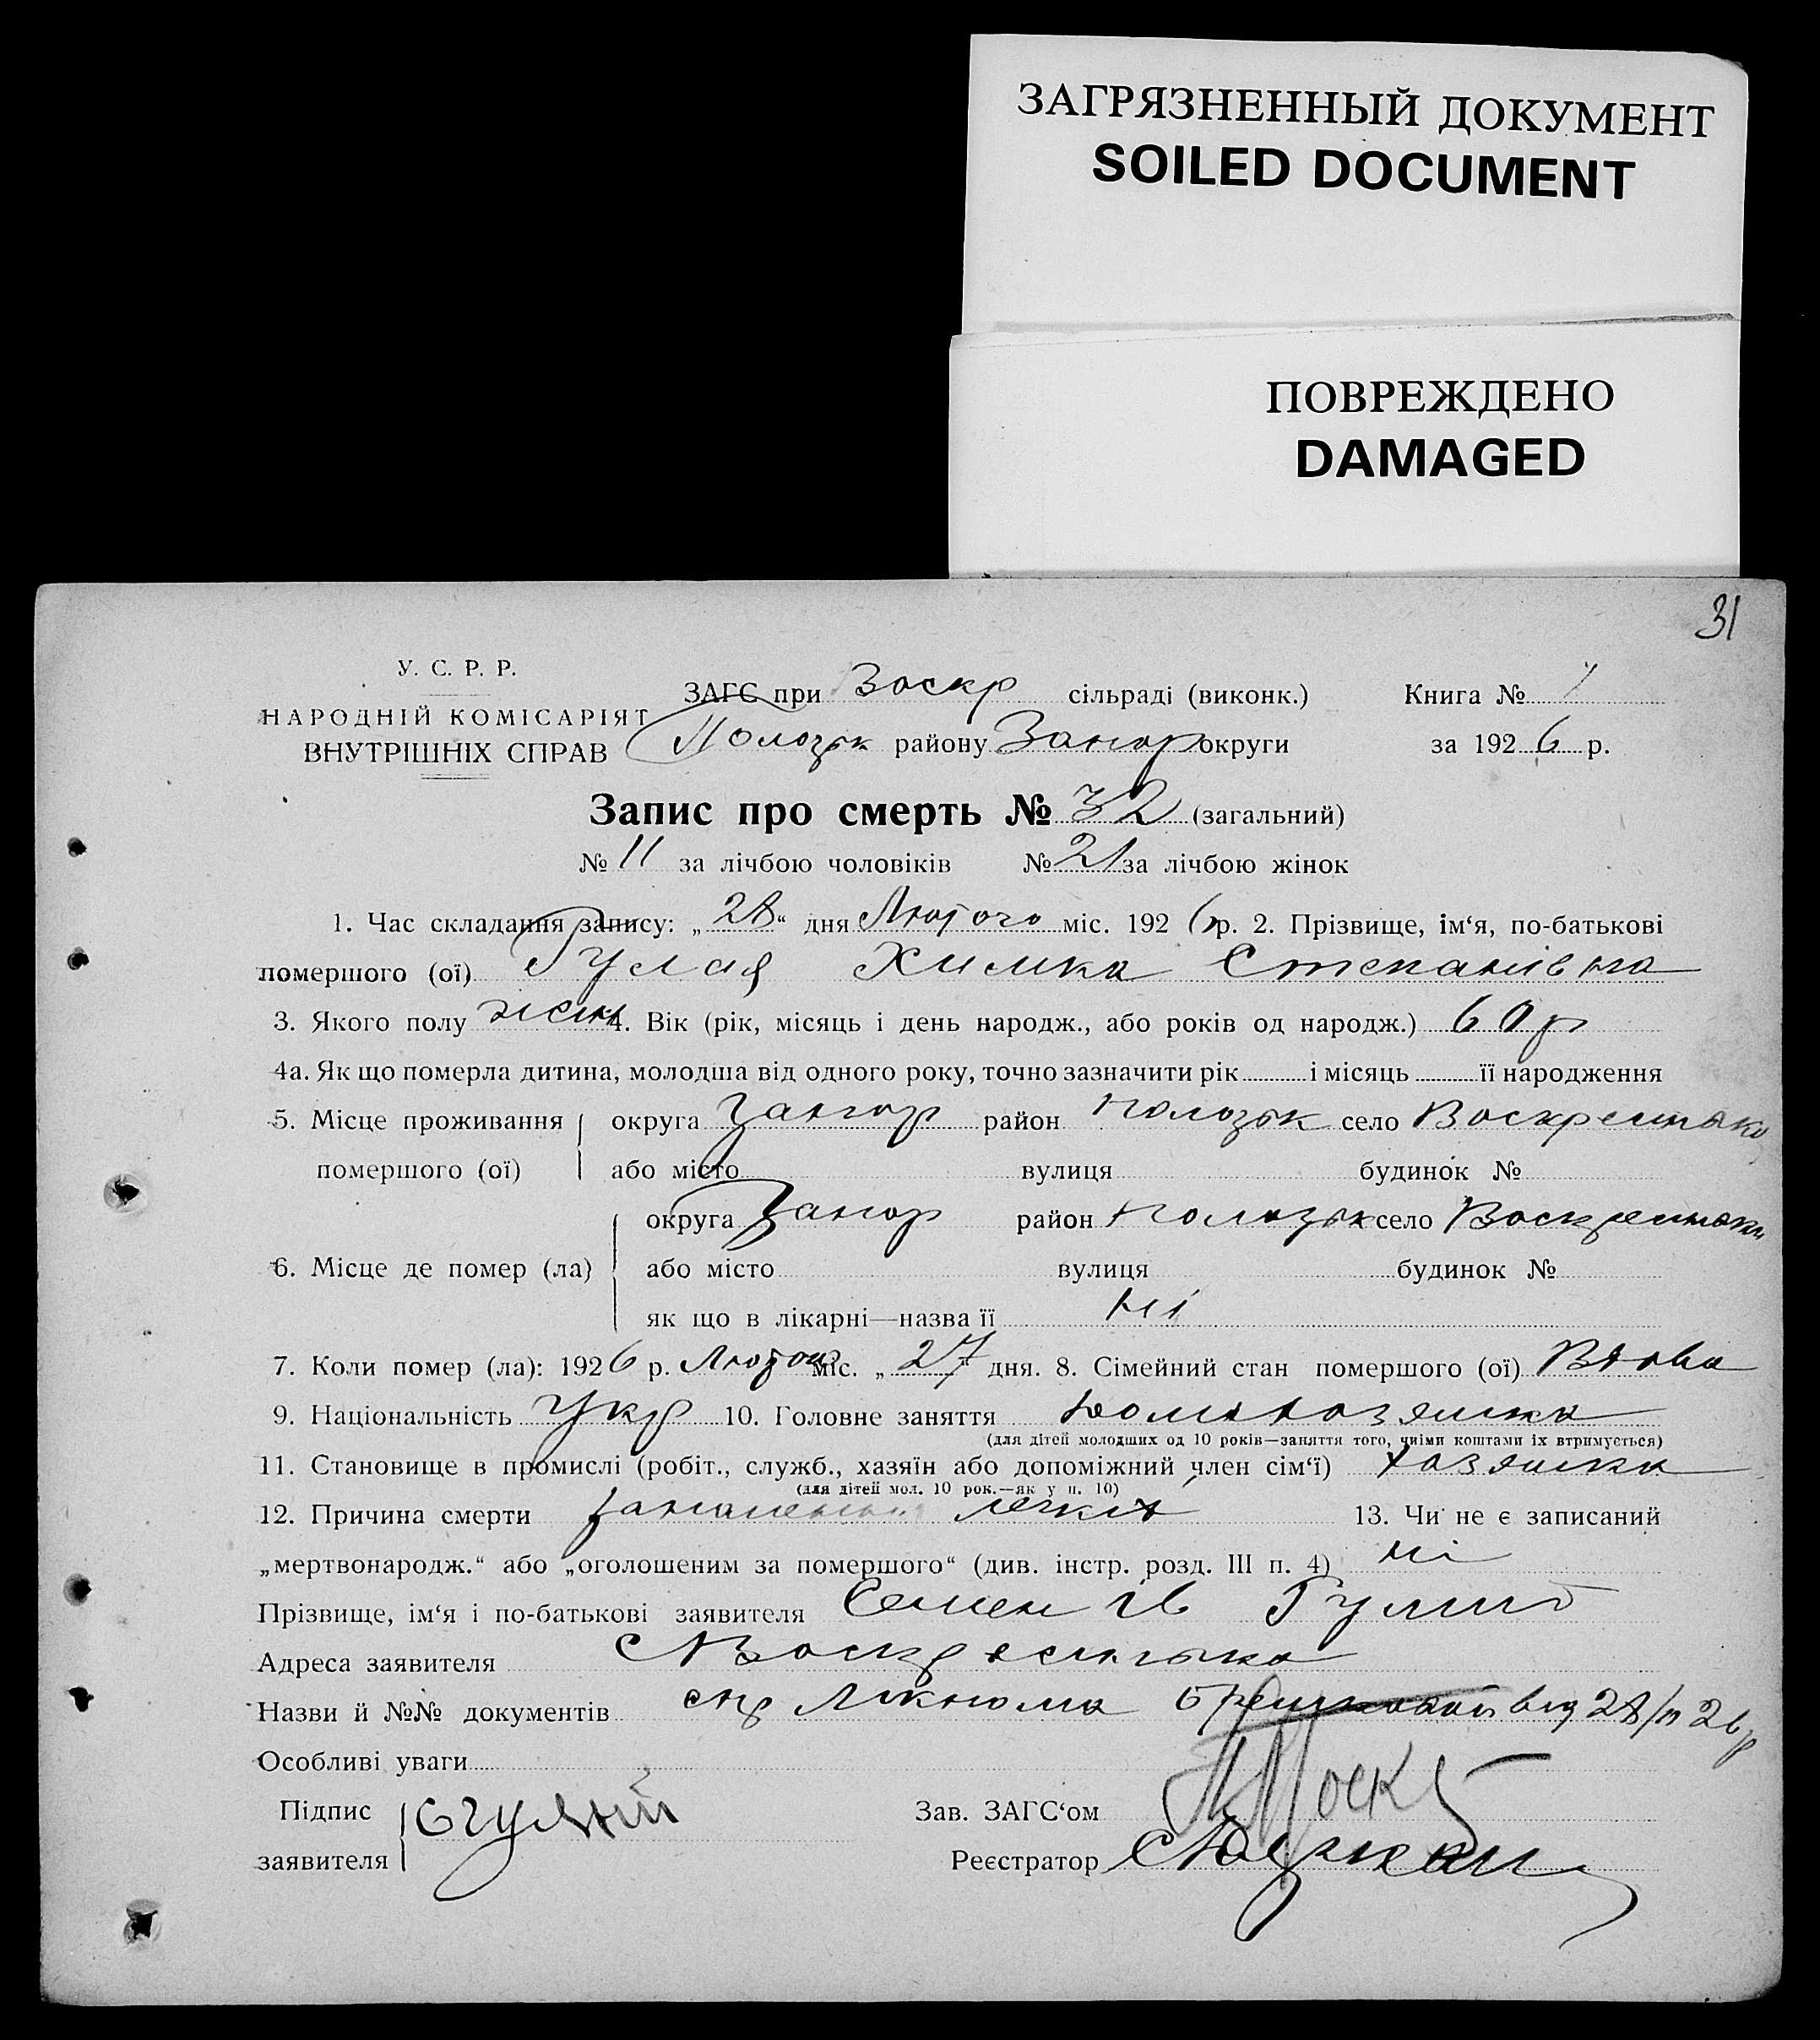 ЗАГРЯЗНЕННЫЙ ДОКУМЕНТ
SOILED DOCUMENT
ПОВРЕЖДЕНО
DAMAGED
31
У. С. Р. Р.
НАРОДНІЙ КОМІСАРІЯТ
ВНУТРІШНІХ СПРАВ
ЗАГС при Воскр сільраді (виконк.) Книга №
Пологськ району Запор округи за 1926 р.
Запис про смерть № 32 (загальний)
№ 11 за лічбою чоловіків № 21 за лічбою жінок
1. Час складання запису: „28“ дня Лютого міс. 1926 р. 2. Прізвище, ім‘я, по-батькові
помершого (ої) Гулая Химка Степанівна
3. Якого полу жін 4. Вік (рік, місяць і день народж., або років од народж.) 60 р
4а. Як що померла дитина, молодша від одного року, точно зазначити рік і місяць її народження
5. Місце проживання округа Запор район село
помершого (ої) або місто вулиця будинок №
округа Запор район село
6. Місце де помер (ла) або місто вулиця будинок №
як що в лікарні—назва її ні
7. Коли помер (ла): 1926 р. Лютого міс. „27“ дня. 8. Сімейний стан помершого (ої) Вдова
9. Національність Укр 10. Головне заняття
(для дітей молодших од 10 років—заняття того, чиїми коштами їх втримується)
11. Становище в промислі (робіт., служб., хазяїн або допоміжний член сім‘ї) хазяйка
(для дітей мол. 10 рок.—як у п. 10)
12. Причина смерти 13. Чи не є записаний
„мертвонародж.“ або „оголошеним за помершого“ (див. інстр. розд. III п. 4) ні
Прізвище, ім‘я і по-батькові заявителя Семен Ів Гулий
Адреса заявителя с
Назви й №№ документів від 28/II 26 р
Особливі уваги
Підпис Зав. ЗАГС‘ом
заявителя Реєстратор